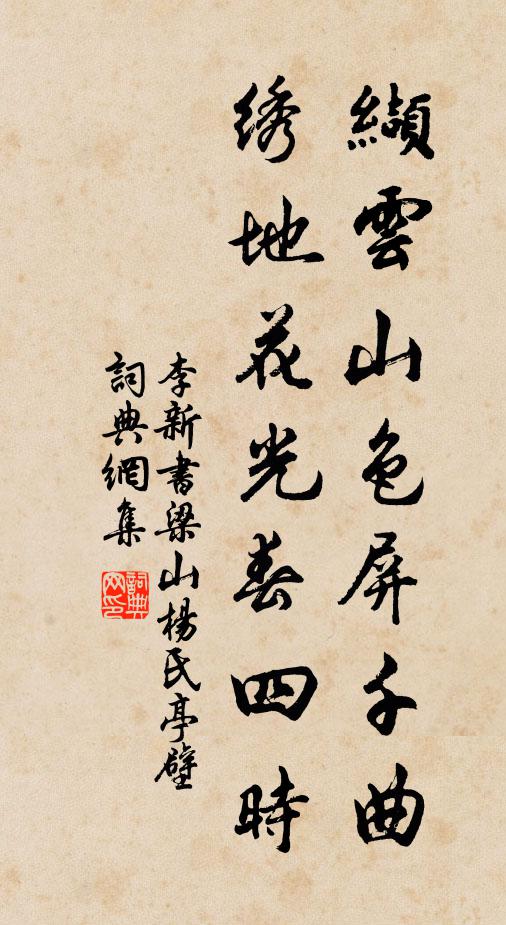 纈雲山色屏千曲
绣地花光春四時
李新書梁山楊氏亭壁
詞典網集
詞典網印